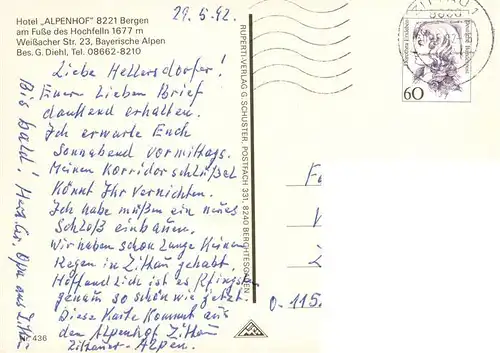 Hotel „ALPENHOF" 8221 Bergen
am Fuße des Hochfelln 1677 m
Weißacher Str. 23, Bayerische Alpen
Bes. G. Diehl, Tel. 08662-8210
29.5.92.
Liebe Hellersdorfer!
Euern lieben Brief
dankend erhalten.
Ich erwarte Euch
Sonnabend vormittags.
Meinen Korridorschlüßel
könnt Ihr vernichten.
Ich habe müßen ein neues
Schloß einbauen.
Wir haben schon lange keinen
Regen in Zittau gehabt.
Hoffendlich ist es Pfingsten
genau so schön wie jetzt.
Diese Karte kommt aus
den Alpenhof Zittau
Zittauer-Alpen.
Bis bald! Herzl. Gr. Opa aus Zitt.
436
RUPERTI-VERLAG G. SCHUSTER, POSTFACH 331, 8240 BERCHTESGADEN
60
0-115